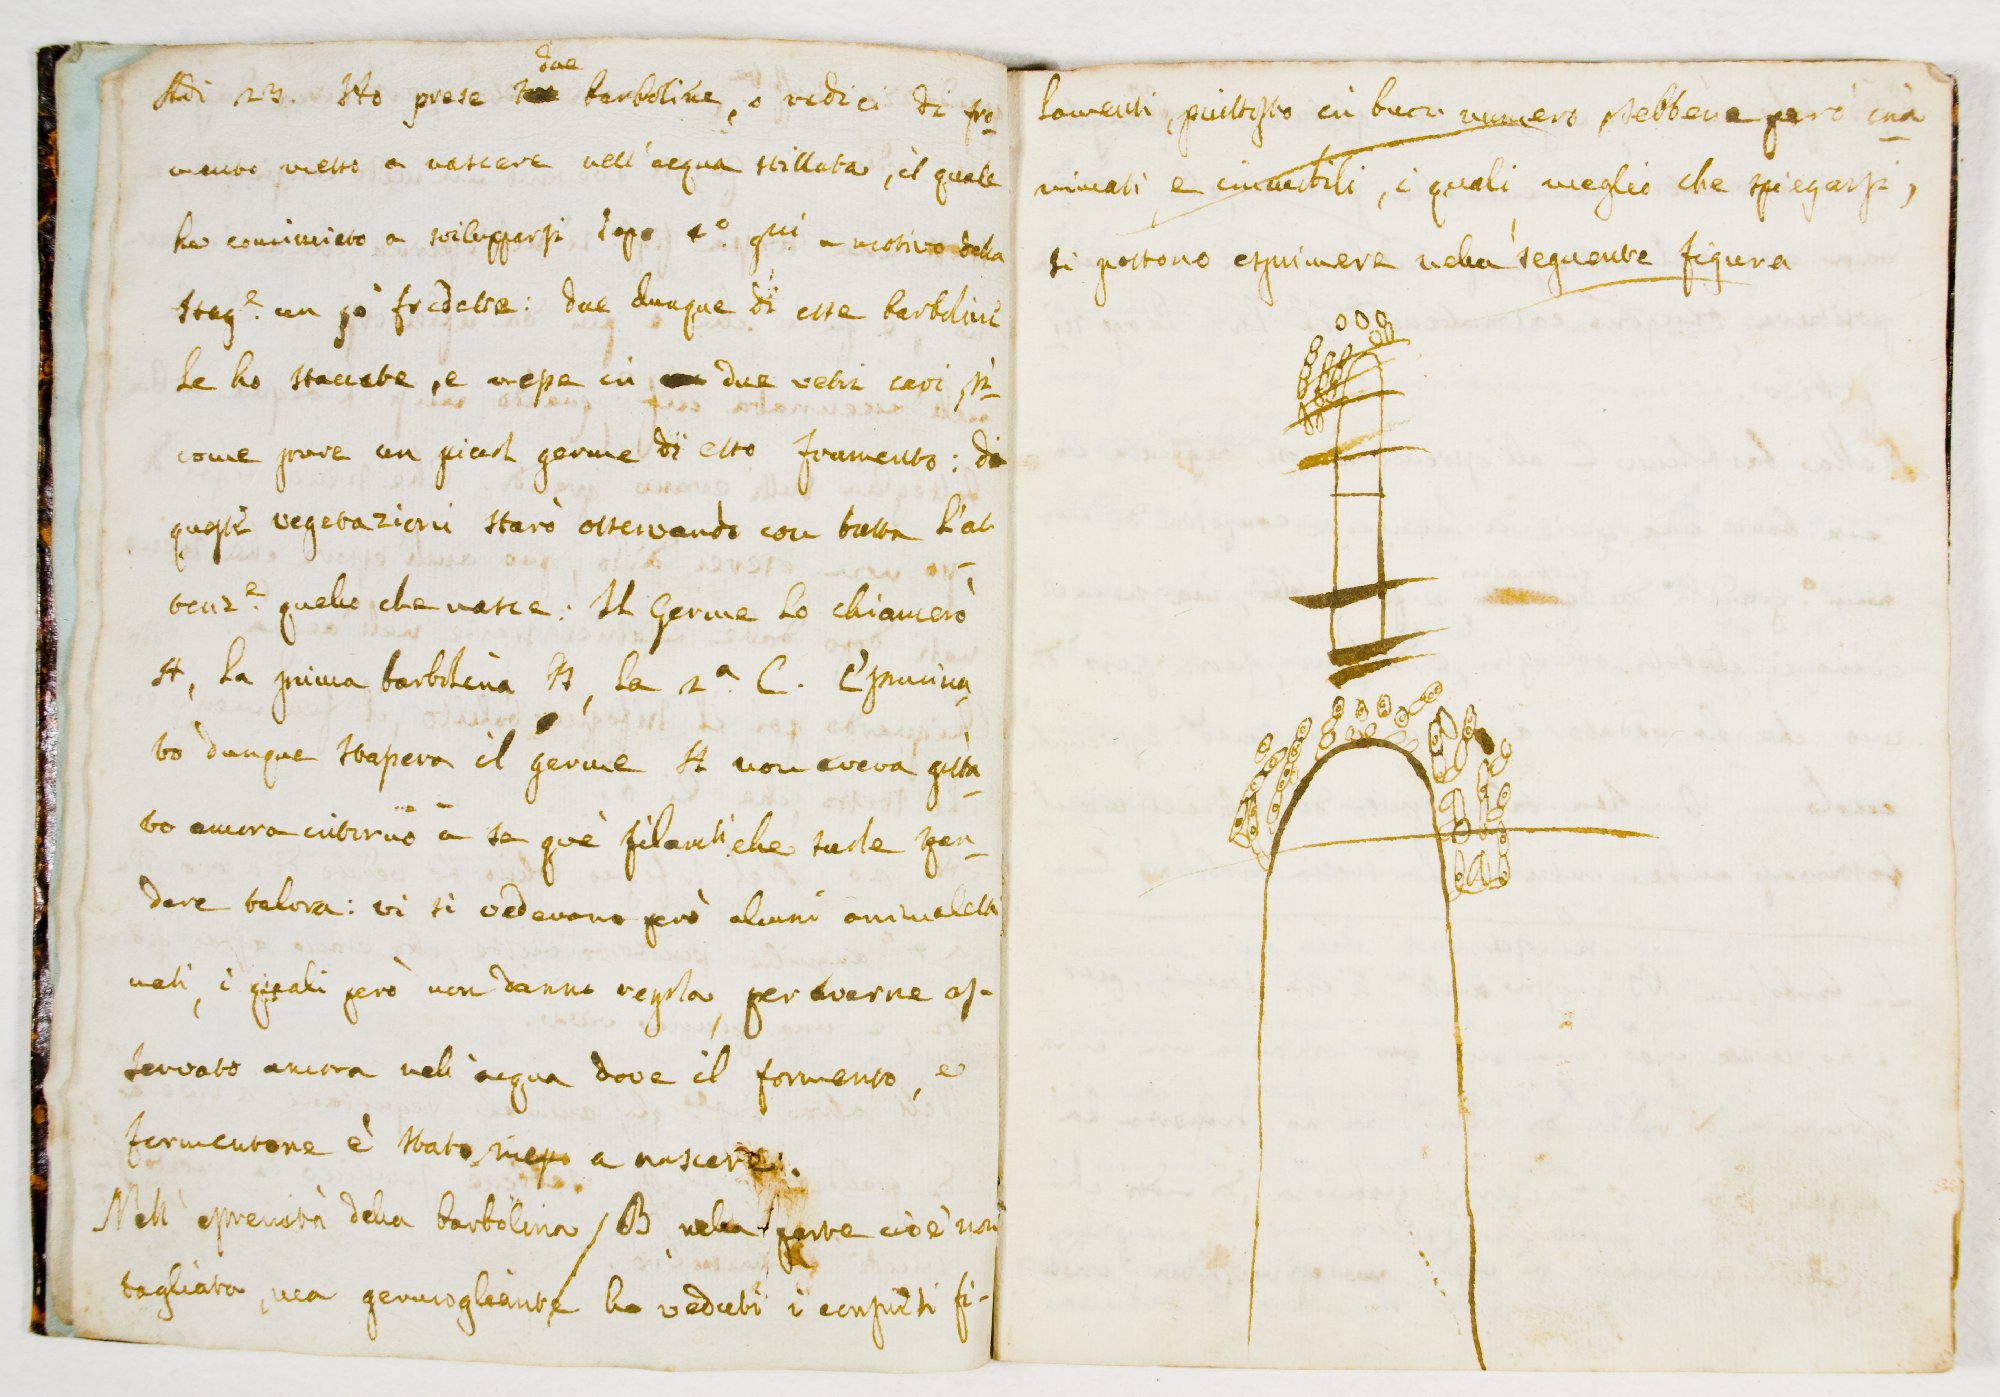 Adi 23. Ho prese due barboline, o radici di fro-
mento messo a nascere nell'acqua stillata, il quale
ha cominciato a svilupparsi dopo 10 gni a motivo della
stag.e un pò fredetta: due dunque di esse barboline
le ho staccate, e messe in due vetri cavi, si-
come pure un picol germe di esso frumento: di
queste vegetazioni starò osservando con tutta l'at-
tenz.e quello che nasce: Il Germe lo chiamerò
A, la prima barbolina B, la 2.a C.
to dunque stasera il germe A non aveva gitta-
to ancora intorno a se que' filamti che suole man-
dare talora: vi si vedevano però alcuni animaletti
nati, i quali però non danno regola, per averne os-
servato ancora nell'acqua dove il formento, e
formentone è stato messo a nascere.
Nell'estremità della barbolina B nella parte cioè non
tagliata, ma germogliante ho veduti i consueti fi-
lamenti, piuttosto in buon numero, sebbene però ina-
nimati e immobili, i quali meglio che spiegarsi,
si possono esprimere nella seguente figura